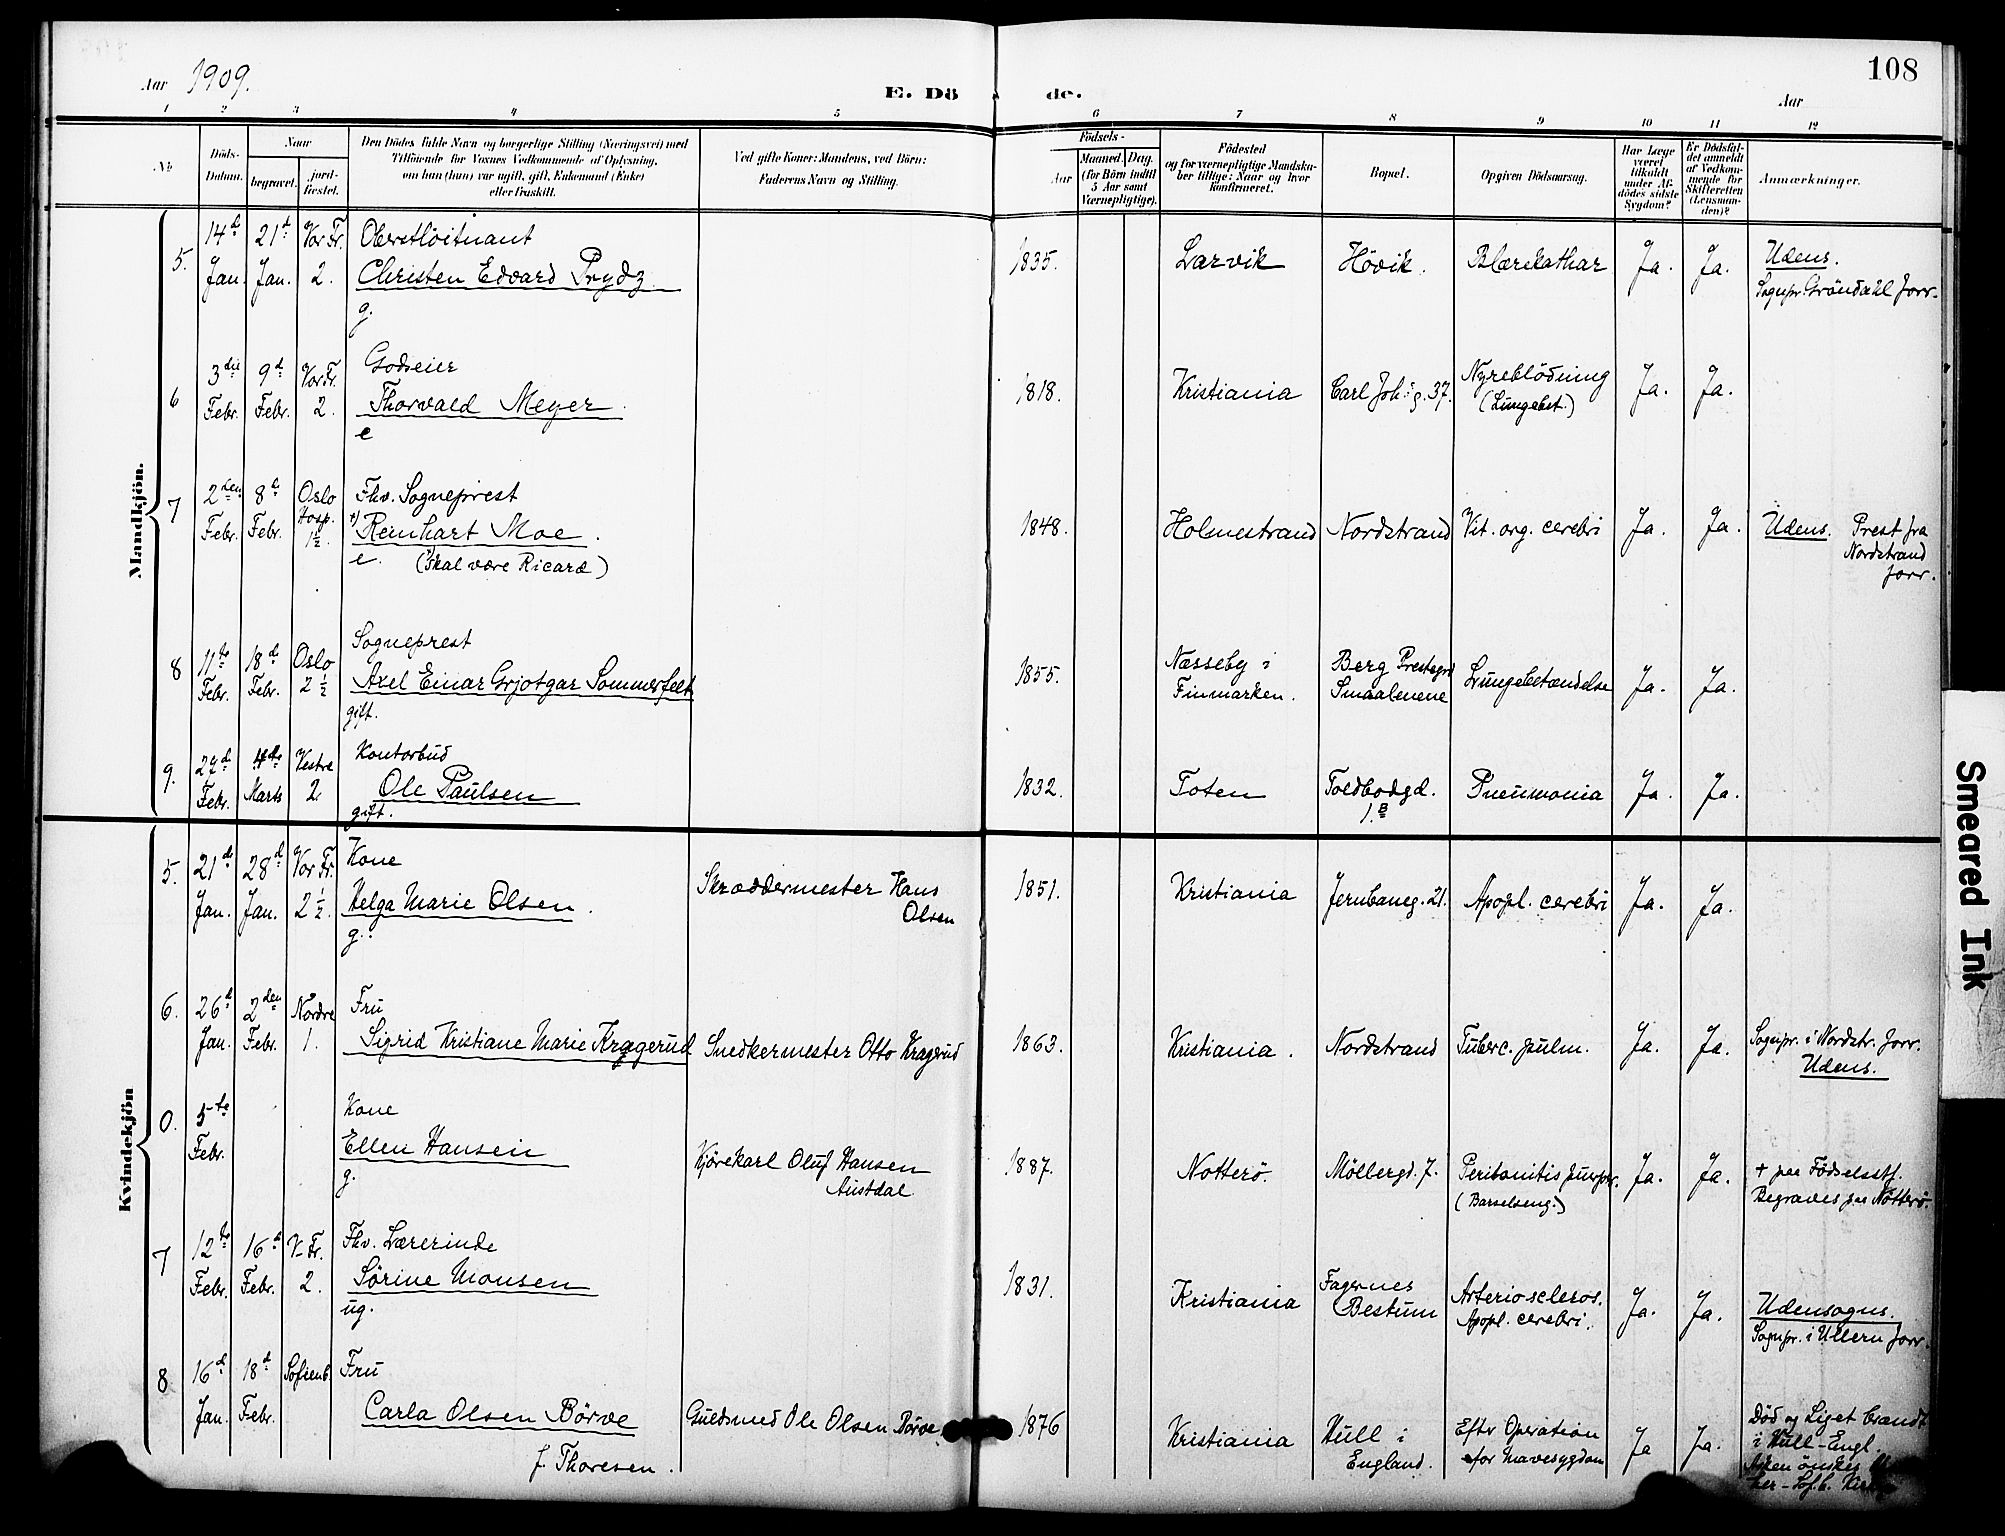 Aar 1909.
E. Dö de.
108
Aar
1 2 3 4 5 6 7 8 9 10 11 12
No.
Döds-
Datum.
Naar
begravet.
jord-
fæstet.
Den Dödes fulde Navn og borgerlige Stilling (Næringsvei) med
Tilföiende for Voxnes Vedkommende af Oplysning,
om han (hun) var ugift, gift, Enkemand (Enke)
eller fraskilt.
Ved gifte Koner: Mandens, ved Börn:
Faderens Navn og Stilling.
Födsels-
Aar
Maaned. Dag.
(for Börn indtil
5 Aar samt
Værnepligtige).
Födested
og for værnepligtige Mandska-
ber tillige: Naar og hvor
konfirmeret.
Bopæl.
Opgiven Dödsaarsag.
Har Læge
været
tilkaldt
under Af-
dödes sidste
Sygdom?
Er Dödsfal-
det anmeldt
af Vedkom-
mende for
Skifteretten
(Lensman-
den)?
Anmærkninger.
Mandkjön.
5. 14d Jan. 21d Jan. Vor Fr. 2.
Oberstlöitnant
Christen Edvard Prydz
g.
1835. Larvik Hövik. Blærekathar Ja. Ja. Udens.
Sognpr. Gröndahl forr.
6 3die Febr. 9d Febr. Vor Fr. 2.
Godseier
Thorvald Meyer.
e
1818. Kristiania Carl Joh. g. 37. Nyreblödning Ja. Ja.
(Lungebet.)
7 2den Febr. 8d Febr. Oslo Hosp. 1½
Fhv. Sogneprest
Reinhart Moe.
e. (skal være Ricard)
1848. Holmestrand Nordstrand Vit. org. cerebri Ja. Ja. Udens. Prest fra
Nordstrand
forr.
8 11te Febr. 18d Febr. Oslo 2½
Sogneprest
Axel Einar Grjotgar Sommerfelt
gift.
1855. Næsseby i Berg Prestegrd Lungebetændelse Ja. Ja.
Finmarken. Smaalenene
9. 27d Febr. 4de Marts Vestre 2.
Kontorbud
Ole Paulsen
gift.
1832. Toten Toldbodgd. Pneumonia Ja. Ja.
1.B
Kvindekjön
5. 21d Jan. 28d Jan. Vor Fr. 2½
Kone
Helga Marie Olsen.
g.
Skræddermester Hans
Olsen
1851. Kristiania Jernbaneg. 21. Apopl. cerebri Ja. Ja.
6. 26d Jan. 2den Febr. Nordre 1.
Fru
Sigrid Kristiane Marie Kragerud
Snedkermester Otto Kragerud
1863. Kristiania. Nordstrand Tuberc. pulm. Ja. Ja. Sognpr. i Nordstr. forr.
Udens.
0. 5te Febr.
Kone
Ellen Hansen
g.
Kjørekarl Oluf Hansen
Austdal
1887. Notterö. Möllergd. 7. Peritonitis puerpr. Ja. Ja. + paa Födselsstf.
(Barselseng.) Begraves paa Nötterö.
7 12te Febr. 16d Febr. V. Fr. 2.
Fhv. Lærerinde
Sörine Monsen
ug.
1831. Kristiania Fagernes Arterioscleros. Ja. Ja. Udensogns.
Bestum Apopl. cerebri. Sognpr. i Ullern forr.
8 16d Jan. 18d Febr. Sofienb.
Fru
Carla Olsen Börve
f. Thoresen.
Guldsmed Ole Olsen Börve.
1876 Kristiania Hull i England. Eftr Operation Ja Ja. Död og Liget brændt
for Mavesygdom i Hull - Engl.
Asken önskes
Smeared Ink